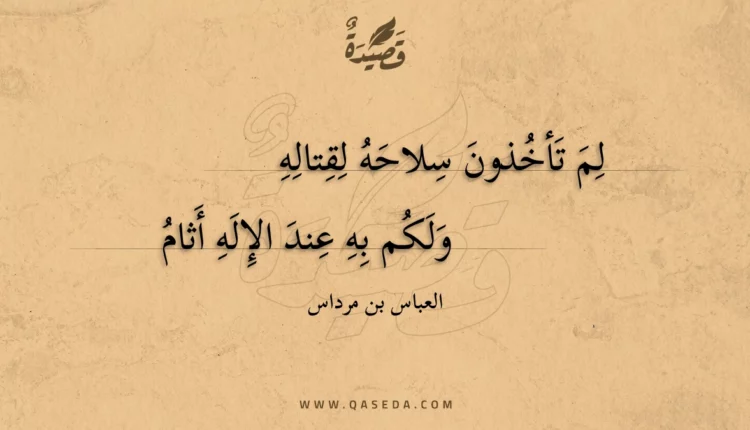 قَصِيدَةٌ
لِمَ تَأخُذونَ سِلاحَهُ لِقِتالِهِ
وَلَكُم بِهِ عِندَ الإِلَهِ أَثامُ
العباس بن مرداس
WWW.QASEDA.COM